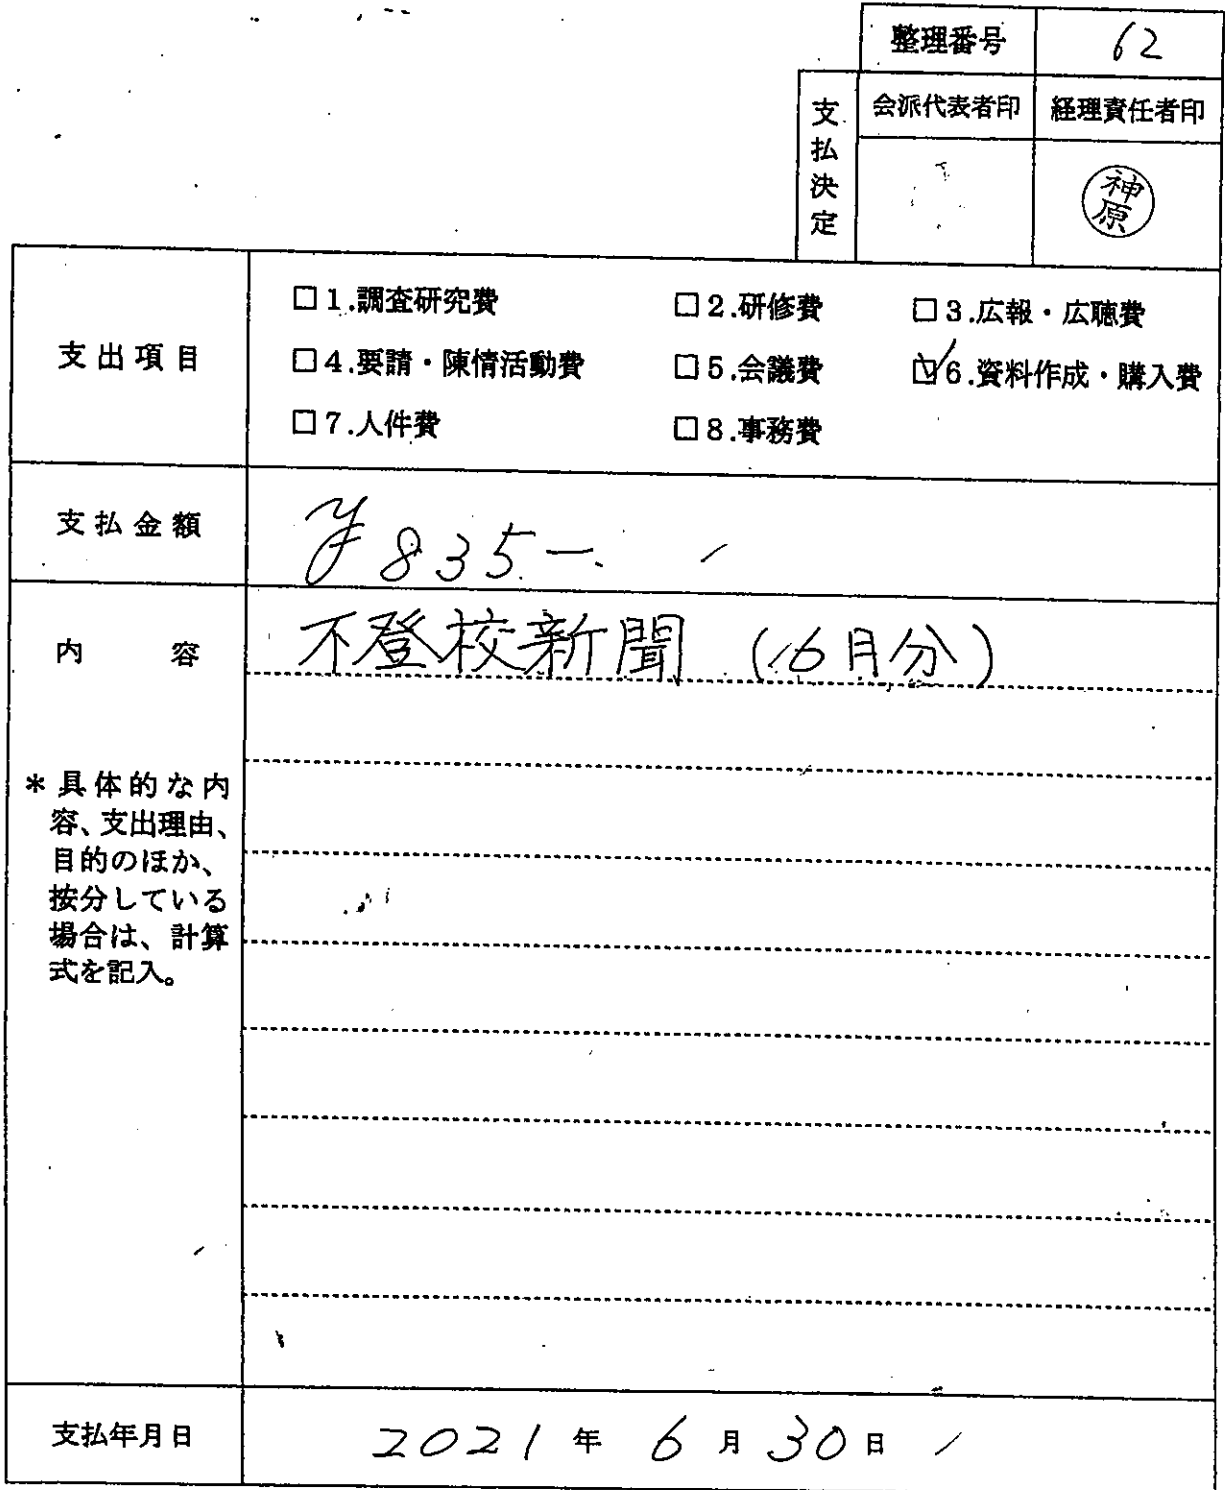 整理番号 62
支払決定
会派代表者印 経理責任者印
神原
支出項目
□1.調査研究費 □2.研修費 □3.広報・広聴費
□4.要請・陳情活動費 □5.会議費 ☑6.資料作成・購入費
□7.人件費 □8.事務費
支払金額 ¥835-.
内容 不登校新聞 (6月分)
*具体的な内
容、支出理由、
目的のほか、
按分している
場合は、計算
式を記入。
支払年月日 2021年6月30日